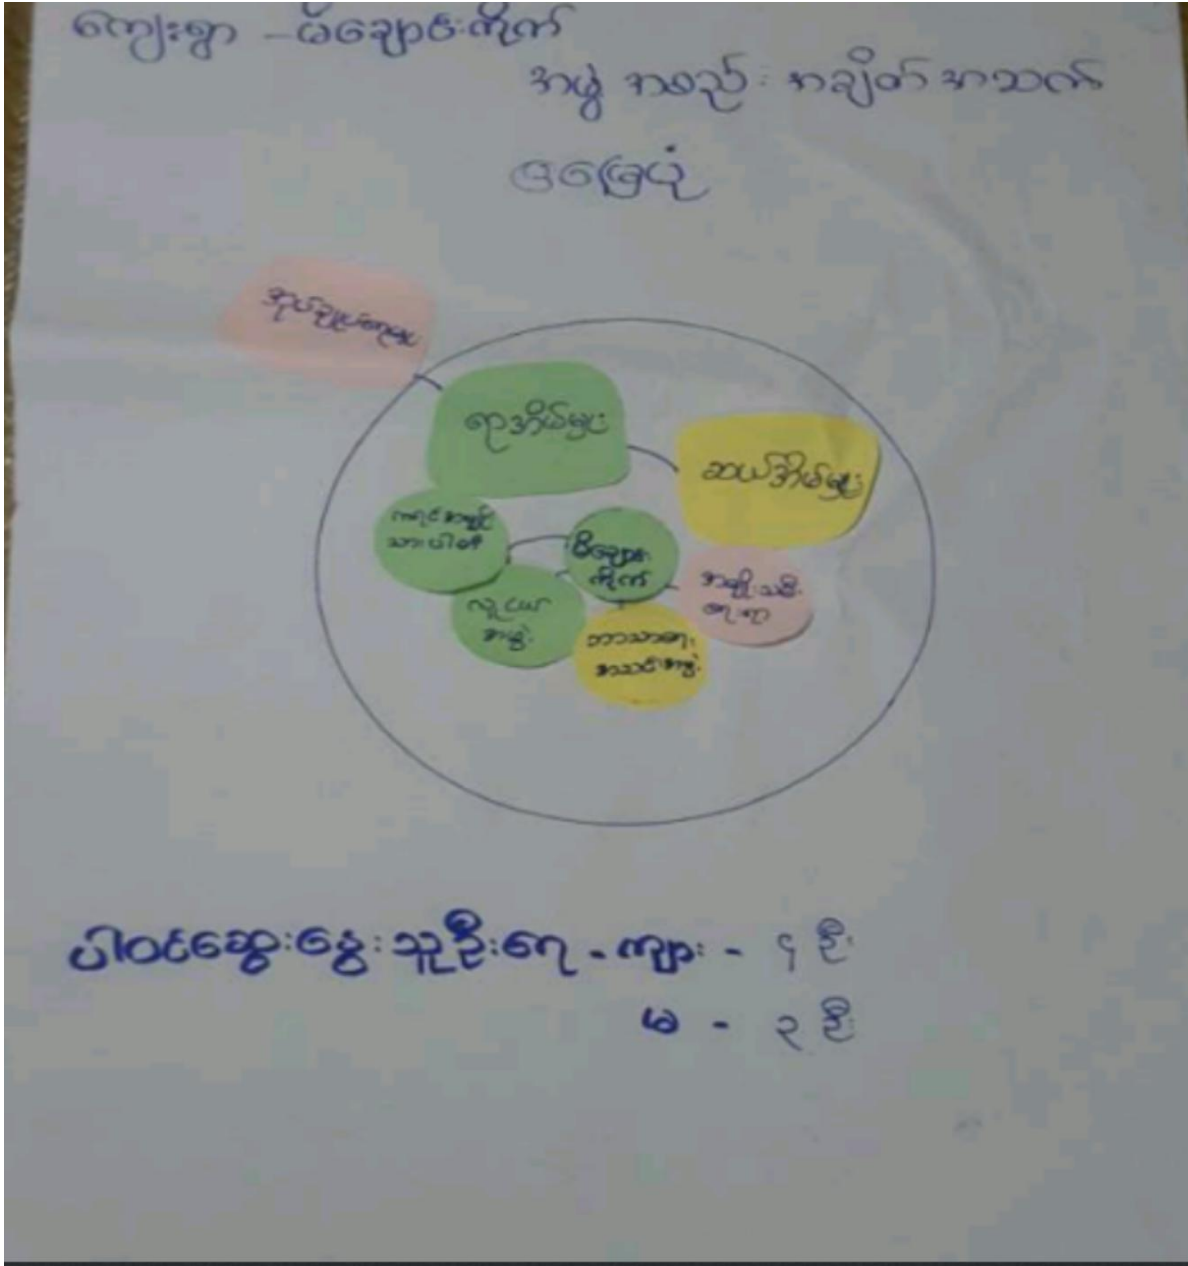 ကျေးရွာ - မိချောင်းကိုက်
အဖွဲ့ အစည်း အချိတ် အဆက်
ပြမြေပုံ
အုပ်ချုပ်ရေးမှူး
ရာအိမ်မှူး
ဆယ်အိမ်မှူး
ကရင်အမျိုး
သားပါတီ
မိချောင်း
ကိုက်
အမျိုးသမီး
ရေးရာ
လူငယ်
အဖွဲ့
ဘာသာရေး
အသင်းအဖွဲ့
ပါဝင်ဆွေးနွေးသူဦးရေ - ကျား - ၄ ဦး
မ - ၃ ဦး